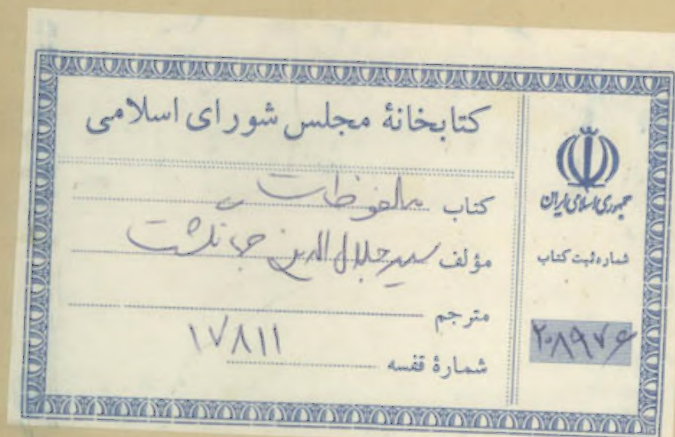 کتابخانهٔ مجلس شورای اسلامی
کتاب ملفوظات
مؤلف سید جلال الدین
مترجم
شمارهٔ قفسه ۱۷۸۱۱
جمهوری اسلامی ایران
شماره ثبت کتاب
۲۰۸۹۷۶